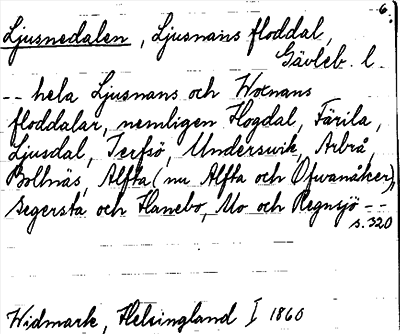 6.
Ljusnedalen, Ljusnans floddal,
Gävleb. l.
-- hela Ljusnans och Wocnans
floddalar, nemligen Hogdal, Färila,
Ljusdal, Jerfsö, Underswik, Arbrå
Bollnäs, Alfta (nu Alfta och Ofwanåker),
Segersta och Hanebo, Mo och Regnsjö --
s. 320
Widmark, Helsingland I 1860